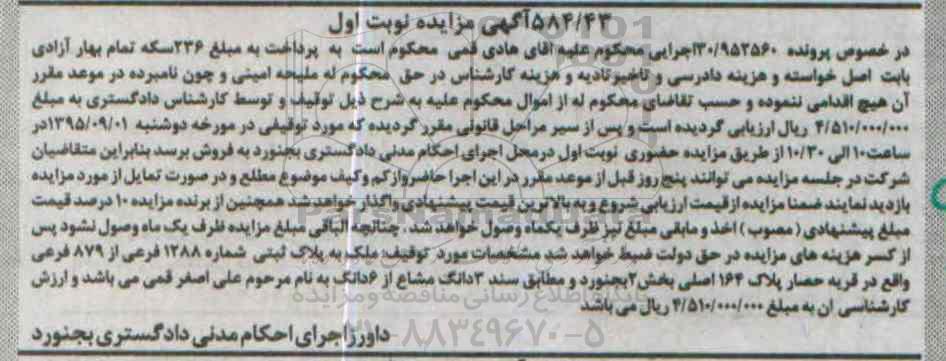 ۵۸۴/۴۳آگهی مزایده نوبت اول
در خصوص پرونده ۳۰/۹۵۲۵۶۰اجرایی محکوم علیه آقای هادی قمی محکوم است به پرداخت به مبلغ ۲۳۶سکه تمام بهار آزادی
بابت اصل خواسته و هزینه دادرسی و تاخیرتادیه و هزینه کارشناس در حق محکوم له ملیحه امینی و چون نامبرده در موعد مقرر
آن هیچ اقدامی ننموده و حسب تقاضای محکوم له از اموال محکوم علیه به شرح ذیل توقیف و توسط کارشناس دادگستری به مبلغ
۴/۵۱۰/۰۰۰/۰۰۰ ریال ارزیابی گردیده است و پس از سیر مراحل قانونی مقرر گردیده که مورد توقیفی در مورخه دوشنبه ۱۳۹۵/۰۹/۰۱در
ساعت۱۰ الی ۱۰/۳۰ از طریق مزایده حضوری نوبت اول درمحل اجرای احکام مدنی دادگستری بجنورد به فروش برسد بنابراین متقاضیان
شرکت در جلسه مزایده می توانند پنج روز قبل از موعد مقرر در این اجرا حاضروازکم وکیف موضوع مطلع و در صورت تمایل از مورد مزایده
بازدید نمایند ضمنا مزایده ازقیمت ارزیابی شروع و به بالاترین قیمت پیشنهادی واگذار خواهد شد همچنین از برنده مزایده ۱۰ درصد قیمت
مبلغ پیشنهادی ( مصوب ) اخذ و مابقی مبلغ نیز ظرف یکماه وصول خواهد شد . چنانچه الباقی مبلغ مزایده ظرف یک ماه وصول نشود پس
از کسر هزینه های مزایده در حق دولت ضبط خواهد شد مشخصات مورد توقیف: ملک به پلاک ثبتی شماره ۱۲۸۸ فرعی از ۸۷۹ فرعی
واقع در قریه حصار پلاک ۱۶۴ اصلی بخش۲بجنورد و مطابق سند ۳دانگ مشاع از ۶دانگ به نام مرحوم علی اصغر قمی می باشد و ارزش
کارشناسی آن به مبلغ ۴/۵۱۰/۰۰۰/۰۰۰ ریال می باشد
داورزاجرای احکام مدنی دادگستری بجنورد
ParsNamadData
پایگاه اطلاع رسانی مناقصه و مزایده
۰۲۱-۸۸۳۴۹۶۷۰-۵